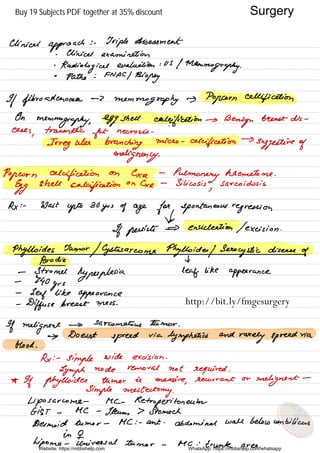 Buy 19 Subjects PDF together at 35% discount
Surgery
Clinical approach :- Triple assessment
· Clinical examination
· Radiological evaluation : US / Mammography.
· Patho : FNAC / Biopsy
If fibroadenoma → mammography → Popcorn calcification
On mammography, egg shell calcification → Benign breast dis-
eases, traumatic fat necrosis.
Irregular branching micro-calcification → Suggestive of
malignancy.
Popcorn calcification on CXR - Pulmonary hamartoma.
Egg shell calcification on CXR - Silicosis, sarcoidosis
Rx:- Wait upto 30 yrs of age for spontaneous regression
If persists ⇒ enucleation / excision.
Phylloides Tumor / Cystosarcoma Phylloides / Serocystic disease of
Brodie
leaf like appearance
- Stromal hyperplasia
- >40 yrs
- Leaf like appearance
- Diffuse breast mass.
http://bit.ly/fmgesurgery
If malignant → Sarcomatous tumor.
→ Doesnt spread via lymphatics and rarely spread via
blood.
Rx:- Simple wide excision.
Lymph node removal not required.
* If phylloides tumor is massive, recurrent or malignant -
Simple mastectomy.
Liposarcoma - MC - Retroperitoneum
GIST - MC - Ileum > Stomach
Desmoid tumor - MC:- ant. abdominal wall below umbilicus
in ♀
Lipoma - Universal tumor - MC: trunk area.
Website: https://mbbshelp.com
WhatsApp: https://mbbshelp.com/whatsapp